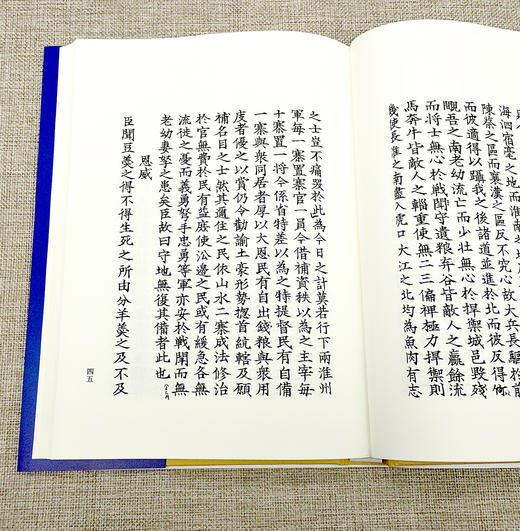 海泗宿亳之地而淮南之
陳蔡之區而襄漢之區反不究心故大兵長驅
而彼適得以躡我之後諸道並進於北而彼反得
覘吾之南老幼流亡而少壯無心於捍禦城邑毀殘
而將士無心於戰閗守遺糧弃谷皆敵人之羸餘流
馬奔牛皆敵人之輜重使無二三偏裨極力捍禦則
幾使長淮之南盡入虎口大江之北均為魚肉有志
之士豈不痛裂於此為今日之計莫若行下兩淮州
軍每一寨置寨官一員令借補資秩以為之主宰每
十寨置一將令係省特差以為之特提督民有自備
一寨與眾同居者厚以大恩民有自出錢粮與眾用
度者優之以賞仍令勸諭土豪形勢揔首統轄及願
補名目之士然其適住之民依山水二寨成法修治
於官無費於民有益庶使㳂邊之民或有緩急各無
流徙之憂而義勇弩手忠勇等軍亦安於戰閗而無
老幼妻孥之患矣臣故曰守地無復其備者此也
恩威
臣聞豆羹之得不得生死之所由分羊羹之及不及
四五